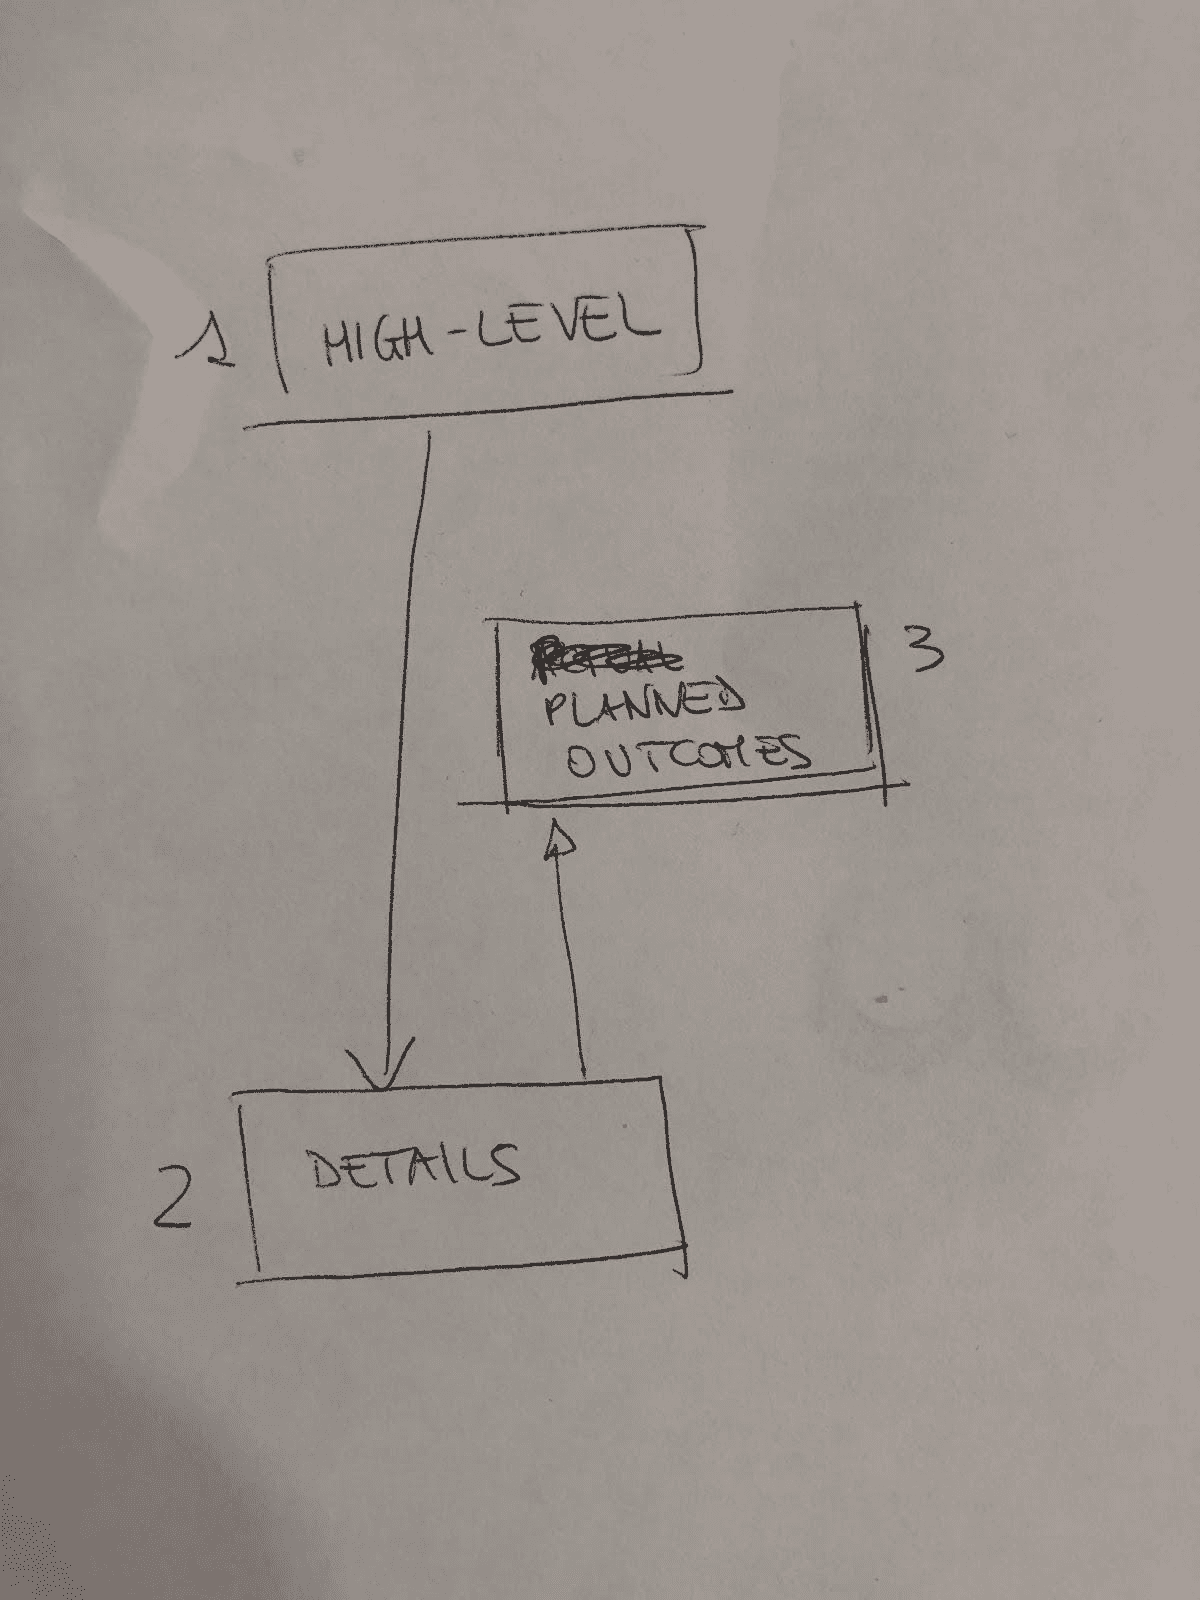 1
HIGH-LEVEL
3
PLANNED
OUTCOMES
2
DETAILS